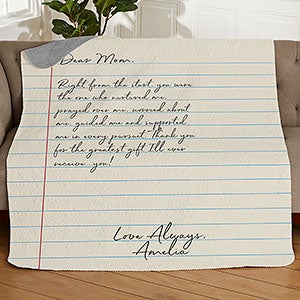 Dear Mom,
Right from the start, you were
the one who nurtured me,
prayed over me, worried about
me, guided me and supported
me in every pursuit. Thank you
for the greatest gift I'll ever
receive...you!
Love Always,
Amelia